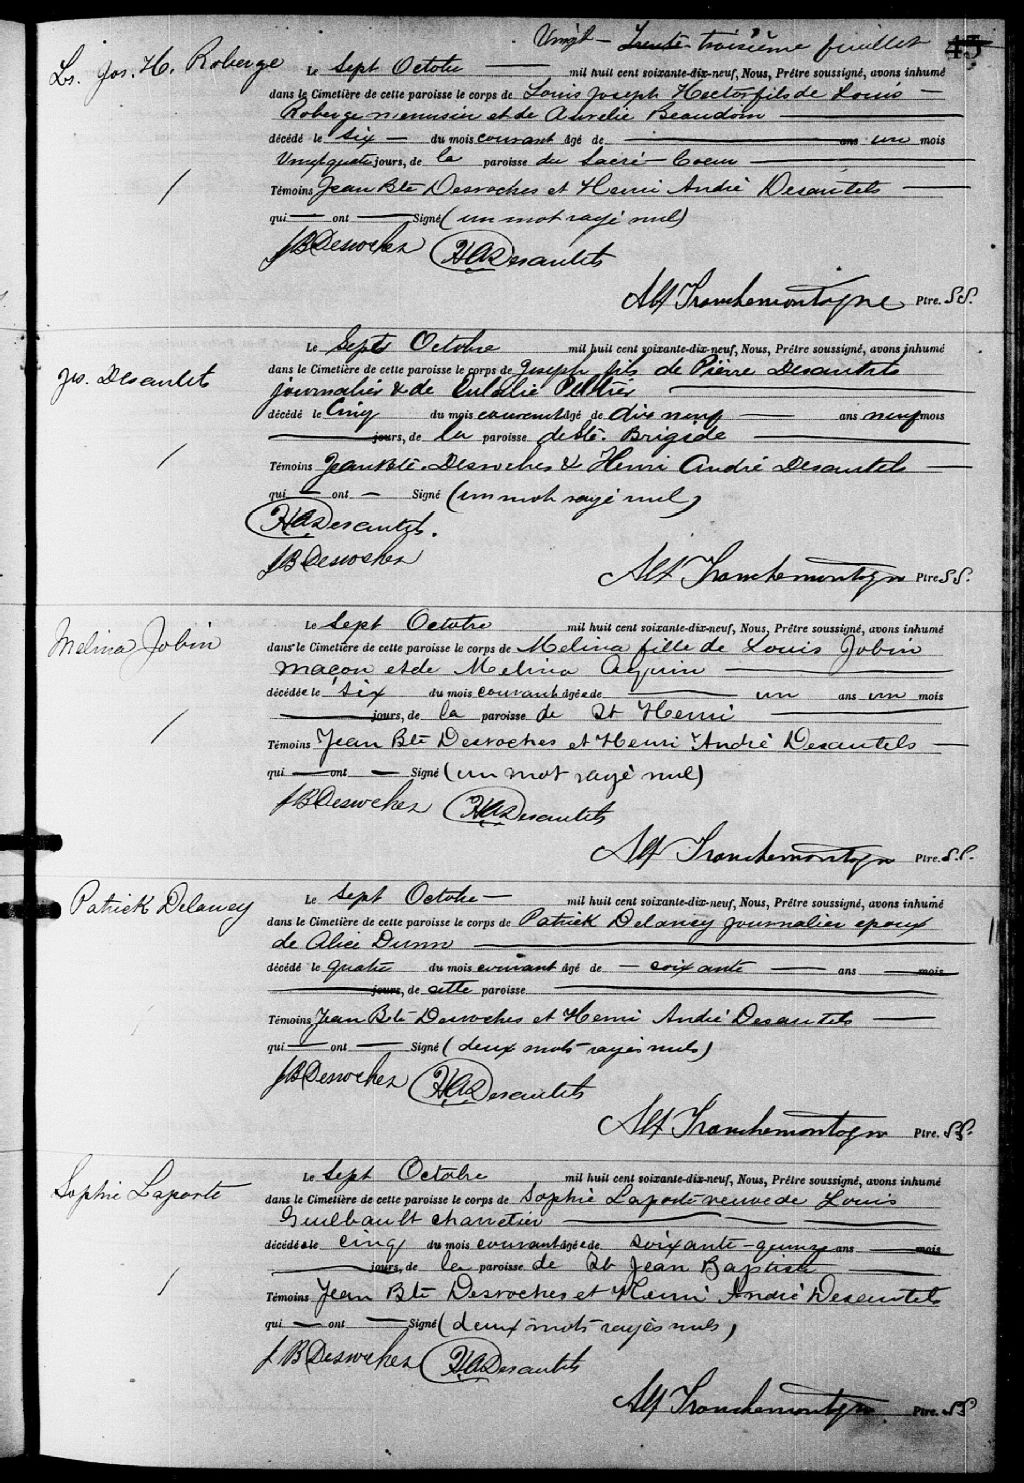 Vingt - Trente-troisième feuillet 45
Ls. Jos. H. Roberge
Le Sept Octobre mil huit cent soixante-dix-neuf, Nous, Prêtre soussigné, avons inhumé
dans le Cimetière de cette paroisse le corps de Louis Joseph Hector fils de Louis
Roberge menuisier et de Aurelie Beaudoin
décédé le six du mois courant âgé de ans un mois
Vingt quatre jours, de la paroisse du Sacré-Coeur
Témoins Jean Bte Desroches et Henri André Desautels
qui ont Signé (un mot rayé nul)
JB Desroches HA Desautels
Alf Tranchemontagne Ptre. S.S.
Jos. Desautels
Le Sept Octobre mil huit cent soixante-dix-neuf, Nous, Prêtre soussigné, avons inhumé
dans le Cimetière de cette paroisse le corps de Joseph fils de Pierre Desautels
journalier & de Eulalie Peltier
décédé le Cinq du mois courant âgé de dix neuf ans neuf mois
jours, de la paroisse de Ste. Brigide
Témoins Jean Bte. Desroches & Henri André Desautels
qui ont Signé (un mot rayé nul)
HA Desautels.
JB Desroches
Alf Tranchemontagne Ptre S.S.
Melina Jobin
Le Sept Octobre mil huit cent soixante-dix-neuf, Nous, Prêtre soussigné, avons inhumé
dans le Cimetière de cette paroisse le corps de Melina fille de Louis Jobin
maçon et de Melina Aquin
décédée le six du mois courant âgée de un ans un mois
jours, de la paroisse de St Henri
Témoins Jean Bte Desroches et Henri André Desautels
qui ont Signé (un mot rayé nul)
JB Desroches HA Desautels
Alf Tranchemontagne Ptre. S.S.
Patrick Delaney
Le Sept Octobre mil huit cent soixante-dix-neuf, Nous, Prêtre soussigné, avons inhumé
dans le Cimetière de cette paroisse le corps de Patrick Delaney journalier epoux
de Alice Dunn
décédé le quatre du mois courant âgé de soixante ans mois
jours, de cette paroisse
Témoins Jean Bte Desroches et Henri André Desautels
qui ont Signé (deux mots rayés nuls)
JB Desroches HA Desautels
Alf Tranchemontagne Ptre. S.S.
Sophie Laporte
Le Sept Octobre mil huit cent soixante-dix-neuf, Nous, Prêtre soussigné, avons inhumé
dans le Cimetière de cette paroisse le corps de Sophie Laporte veuve de Louis
Guilbault charretier
décédée le cinq du mois courant âgée de soixante-quinze ans mois
jours, de la paroisse de St Jean Baptiste
Témoins Jean Bte Desroches et Henri André Desautels
qui ont Signé (deux mots rayés nuls)
JB Desroches HA Desautels
Alf Tranchemontagne Ptre. S.S.